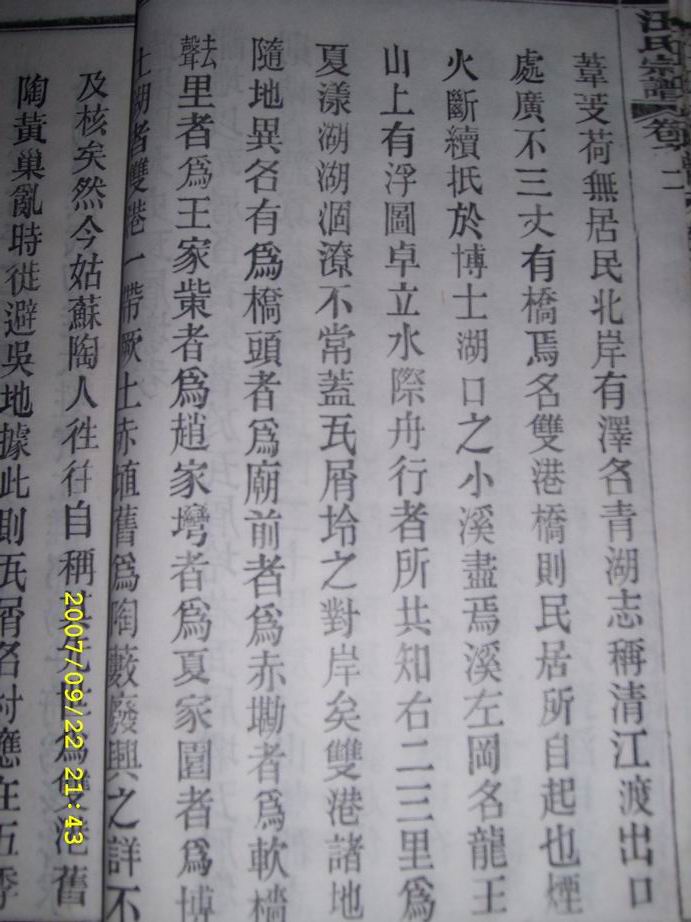 汪氏宗譜
葦芰荷無居民北岸有澤名青湖志稱清江渡出口
處廣不三丈有橋焉名雙港橋則民居所自起也煙
火斷續抵於博士湖口之小溪盡焉溪左岡名龍王
山上有浮圖卓立水際舟行者所共知右二三里爲
夏漾湖湖涸潦不常蓋瓦屑坽之對岸矣雙港諸地
隨地異名有爲橋頭者爲廟前者爲赤塸者爲軟檣
去聲里者爲王家柴者爲趙家灣者爲夏家圍者爲博
士湖者雙港一帶厥土赤埴舊爲陶藪廢興之詳不
及核矣然今姑蘇陶人徃徃自稱其先世爲雙港舊
陶黃巢亂時徙避吳地據此則瓦屑名村應在五季
2007/09/22 21:43